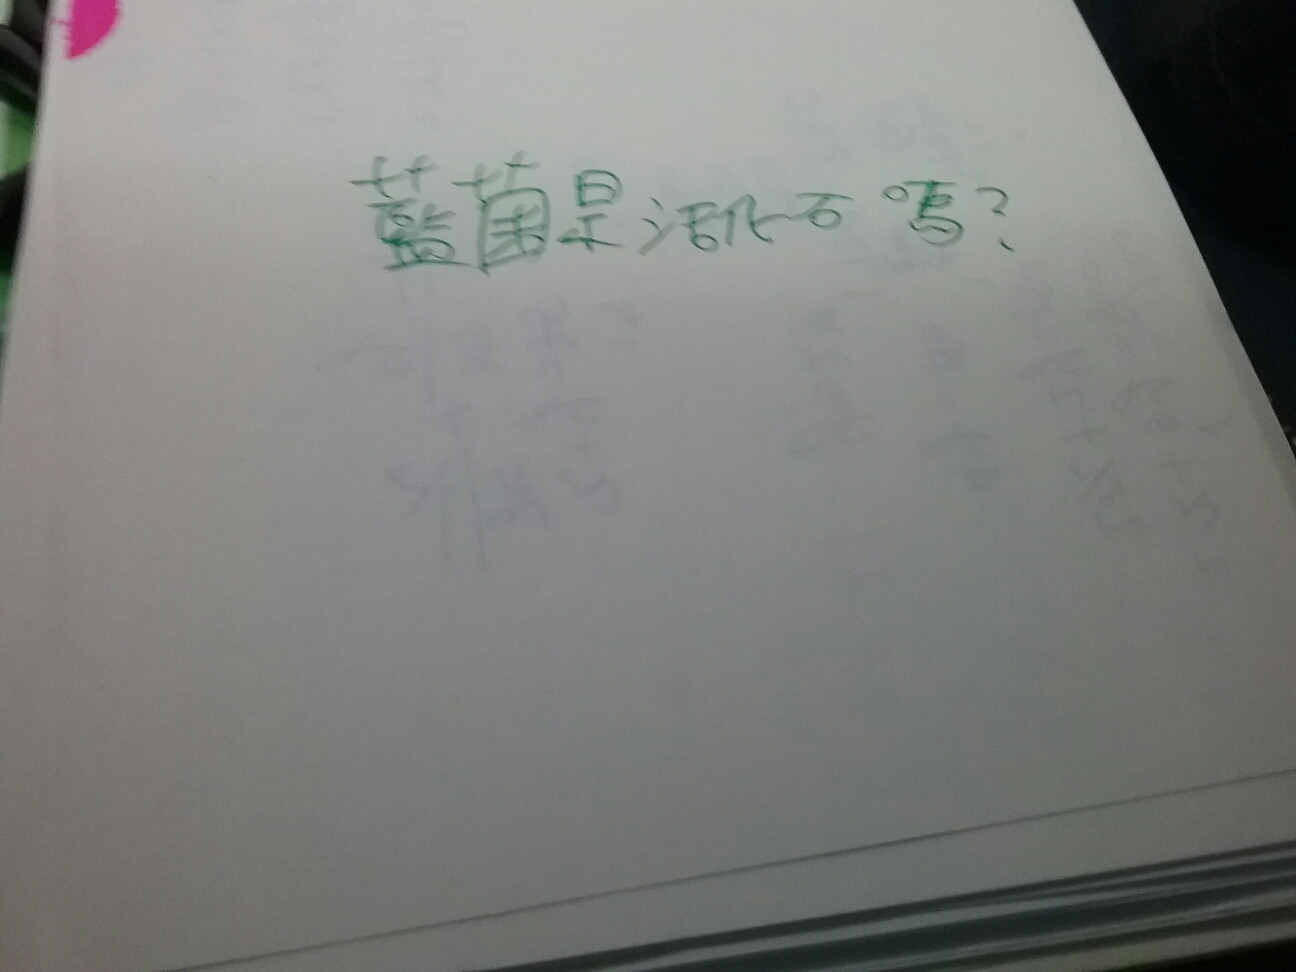 藍菌是活化石嗎?